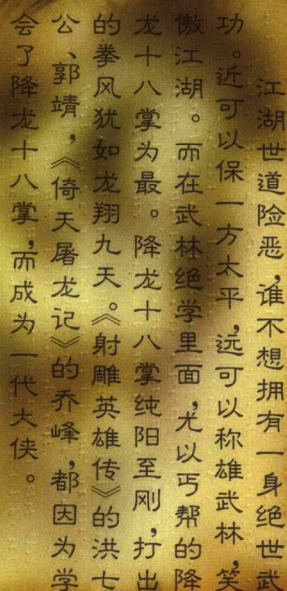 江湖世道险恶，谁不想拥有一身绝世武
功。近可以保一方太平，远可以称雄武林，笑
傲江湖。而在武林绝学里面，尤以丐帮的降
龙十八掌为最。降龙十八掌纯阳至刚，打出
的拳风犹如龙翔九天。《射雕英雄传》的洪七
公、郭靖，《倚天屠龙记》的乔峰，都因为学
会了降龙十八掌，而成为一代大侠。